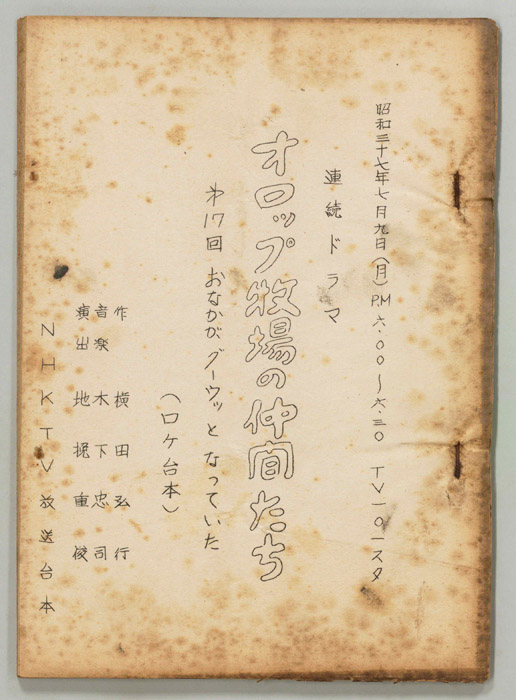 昭和三十七年七月九日(月) PM 六.00〜六.三0 TV一0一スタ
連続ドラマ
オロップ牧場の仲間たち
才17回 おなかが、グーウッと なっていた
(ロケ台本)
作 横田弘行
音楽 木下忠司
演出 地挽重俊
NHKTV放送台本